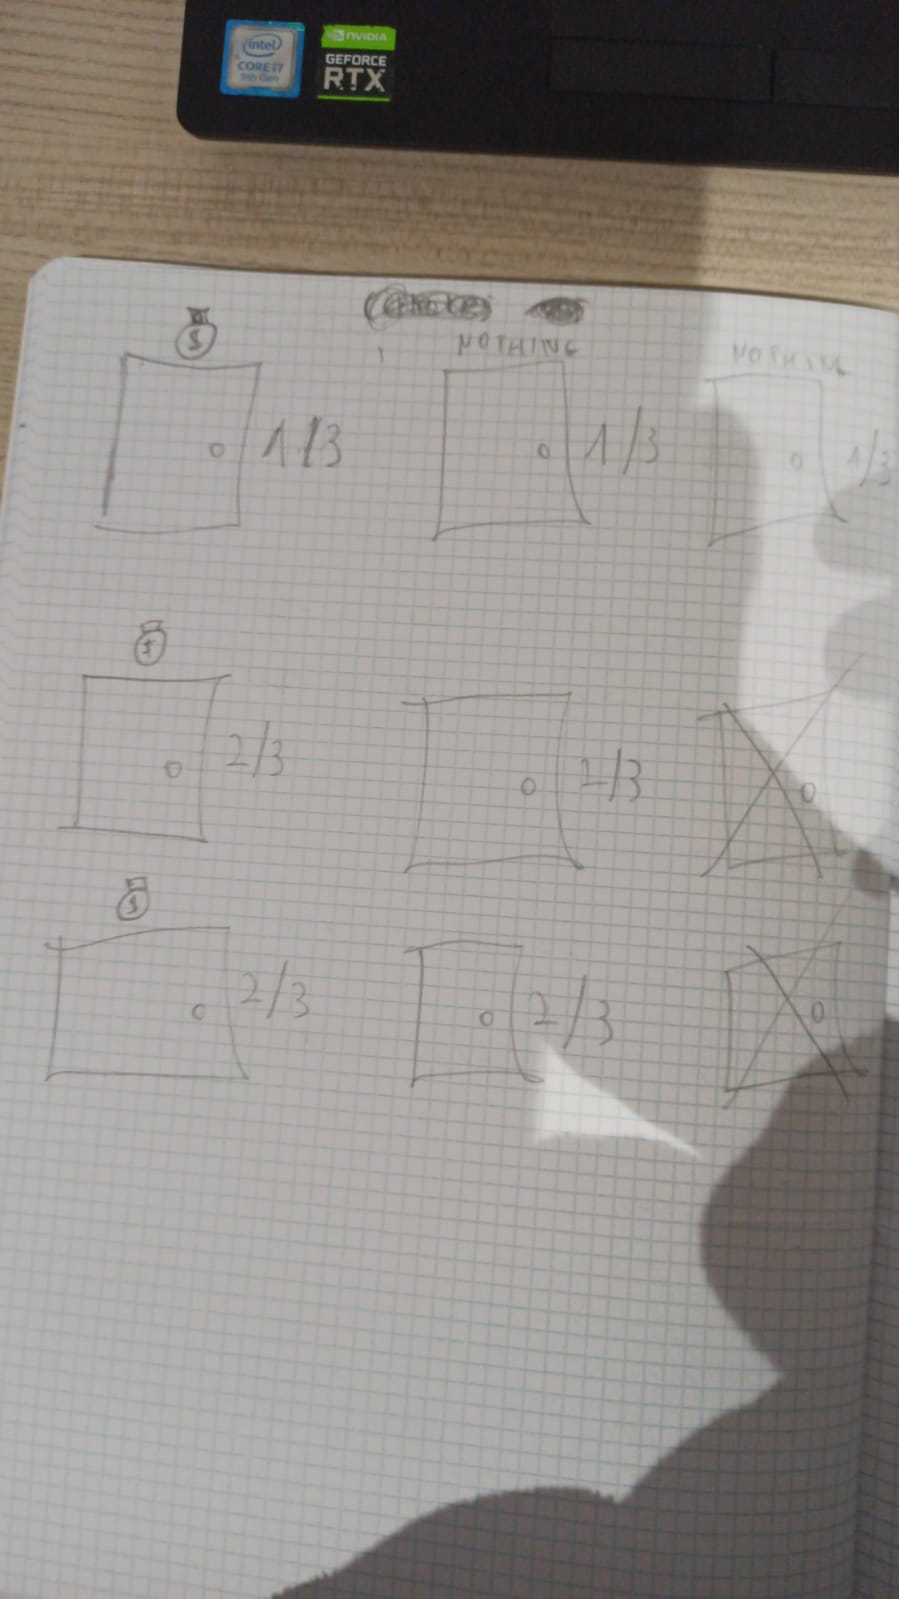 intel
CORE i7
9th Gen
NVIDIA
GEFORCE
RTX
$
NOTHING
NOTHING
1/3
1/3
1/3
$
2/3
2/3
$
2/3
2/3